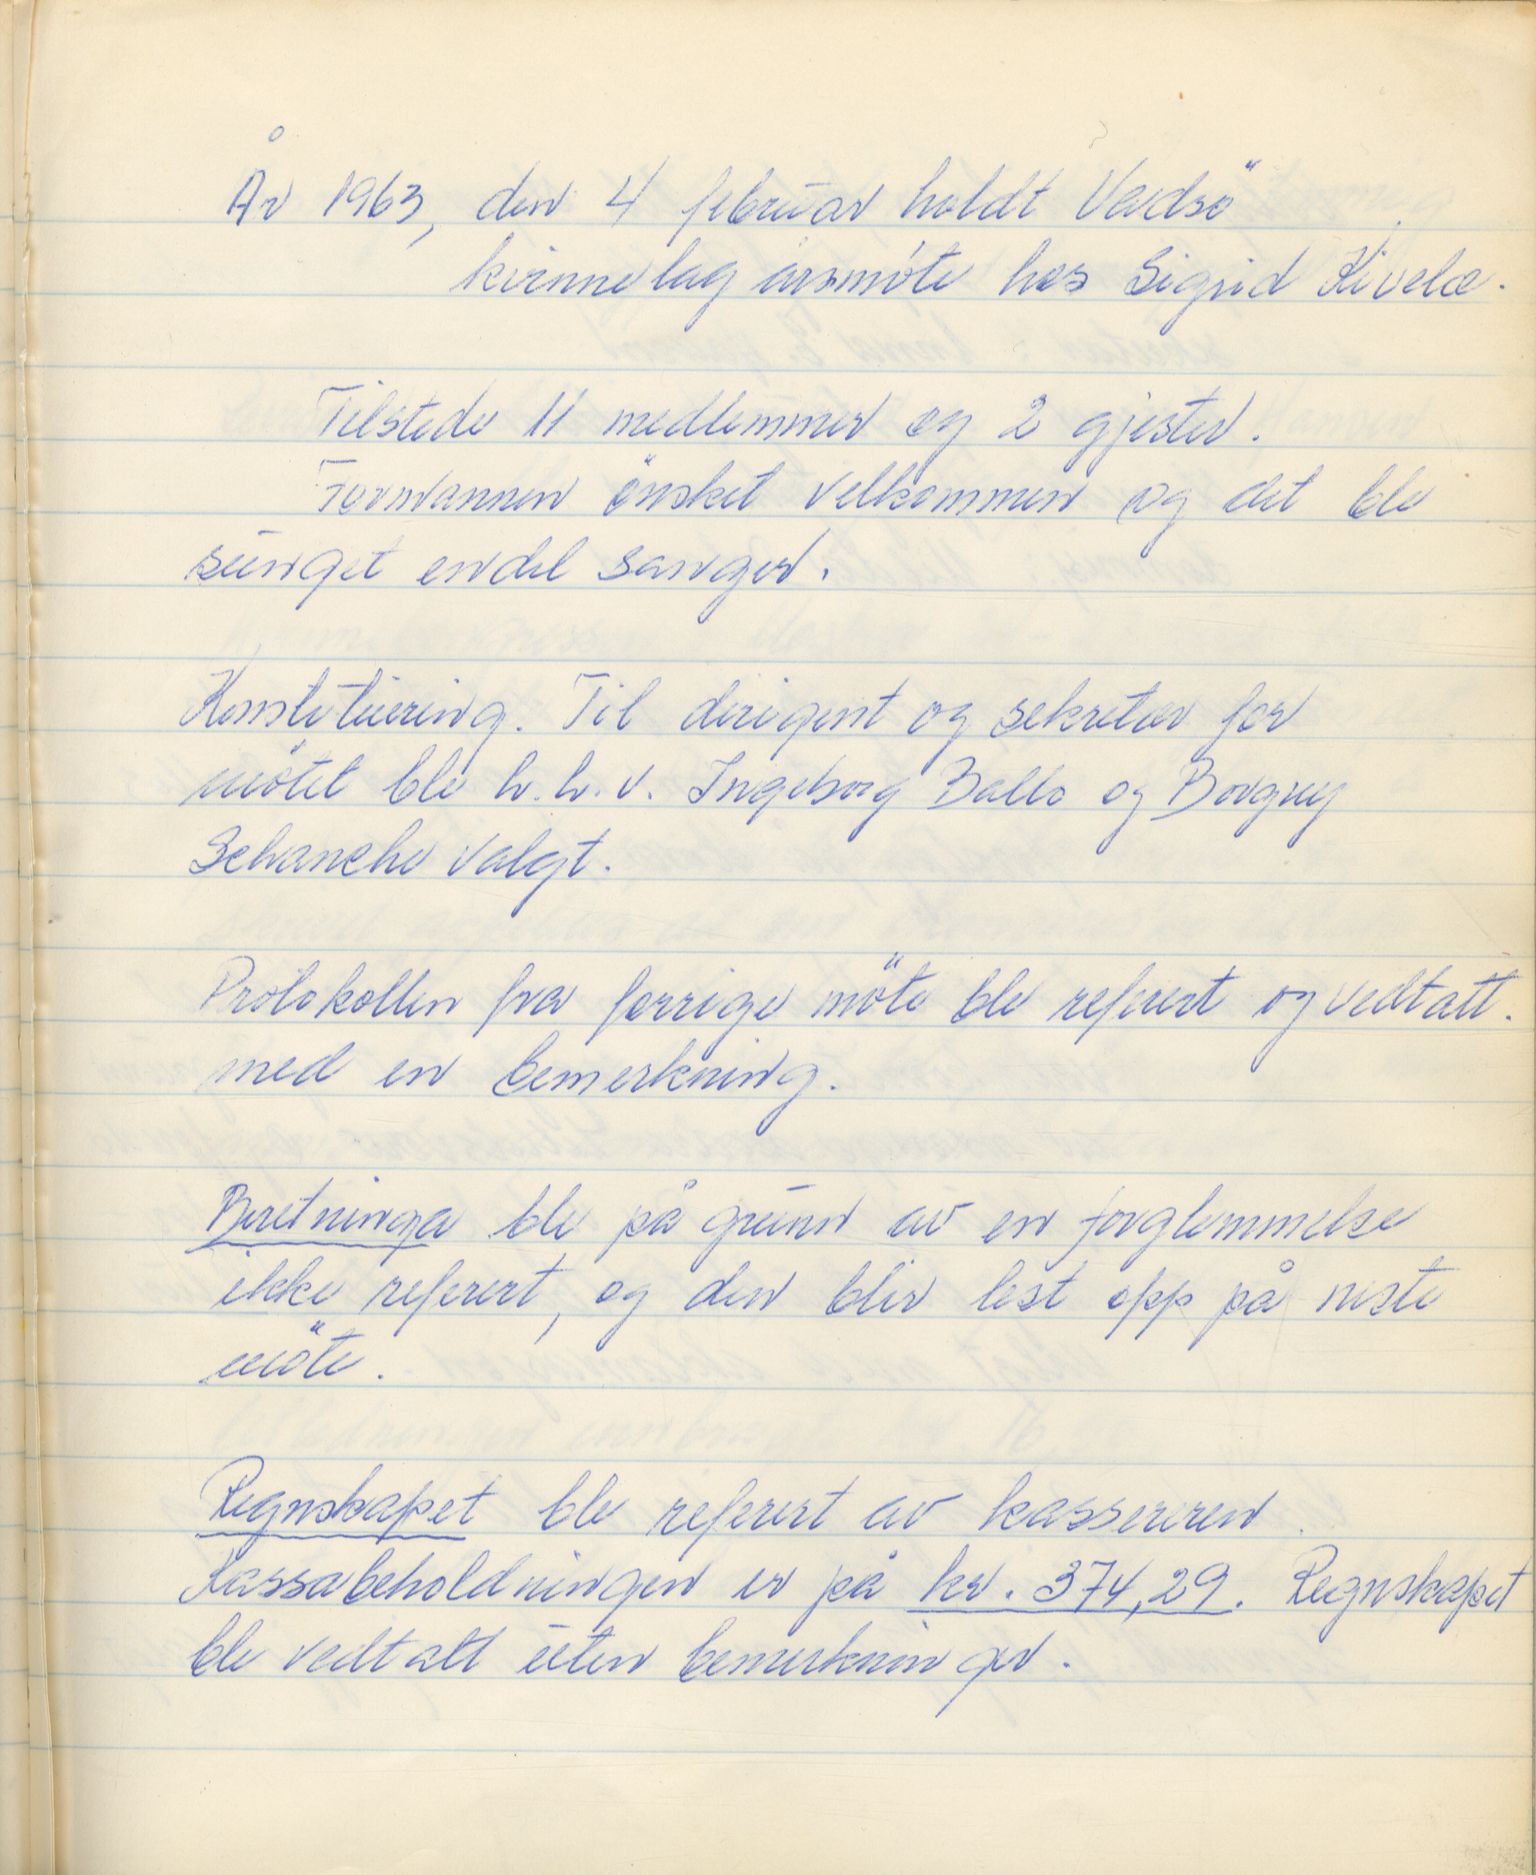 År 1963, den 4 februar holdt Vadsö
kvinnelag årsmöte hos Sigrid Kivelæ.
Tilstede 11 medlemmer og 2 gjester.
Formannen önsket velkommen og det ble
sunget endel sanger.
Konstituering. Til dirigent og sekretær for
mötet ble h.h.v. Ingeborg Ballo og Borgny
Schanche valgt.
Protokollen fra forrige möte ble referert og vedtatt.
med en bemerkning.
Beretninga ble på grunn av en forglemmelse
ikke referert, og den blir lest opp på neste
möte.
Regnskapet ble referert av kassereren.
Kassabeholdningen er på kr. 374,29. Regnskapet
ble vedtatt uten bemerkninger.